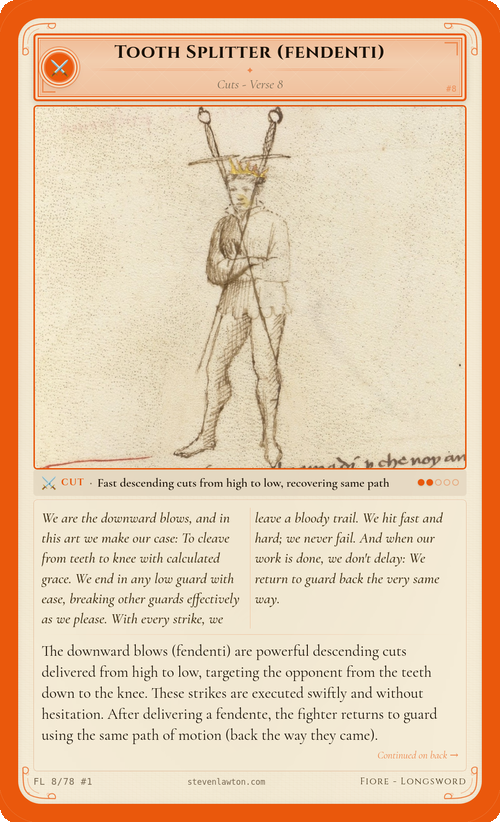 Tooth Splitter (fendenti)
Cuts - Verse 8
#8
CUT · Fast descending cuts from high to low, recovering same path
We are the downward blows, and in
this art we make our case: To cleave
from teeth to knee with calculated
grace. We end in any low guard with
ease, breaking other guards effectively
as we please. With every strike, we
leave a bloody trail. We hit fast and
hard; we never fail. And when our
work is done, we don't delay: We
return to guard back the very same
way.
The downward blows (fendenti) are powerful descending cuts
delivered from high to low, targeting the opponent from the teeth
down to the knee. These strikes are executed swiftly and without
hesitation. After delivering a fendente, the fighter returns to guard
using the same path of motion (back the way they came).
Continued on back →
FL 8/78 #1
stevenlawton.com
Fiore - Longsword